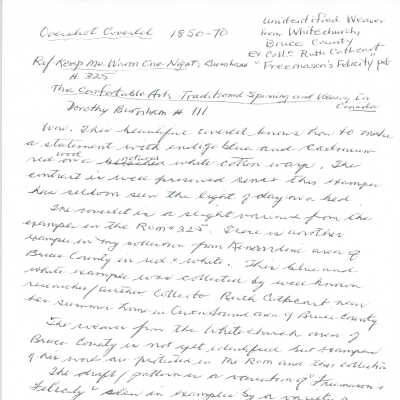 Overshot Coverlet 1850-70
unidentified Weaver
from Whitechurch,
Bruce County
Ex Coll. Ruth Cathcart
Ref Keep Me Warm One Night, Burnham "Freemason's Felicity" pat
# 325
The Comfortable Arts Traditional Spinning and Weaving in
Canada
Dorothy Burnham # 111
Wow. This beautiful coverlet knows how to make
a statement with indigo blue and
red wool on a natural white cotton warp. The
contrast is well preserved since this example
has seldom seen the light of day on a bed.
The coverlet is a slight variant from the
example in the Rom # 325. There is another
example in my collection from area of
Bruce County in red & white. This blue and
white example was collected by well known
researcher/author Collector Ruth Cathcart near
her summer home in Owen Sound area of Bruce County
The weaver from the Whitechurch area of
Bruce County is not yet identified but examples
of his work are in the Rom and collection
The draft/pattern is a variation of "Freemason's
Felicity" seen in examples by or